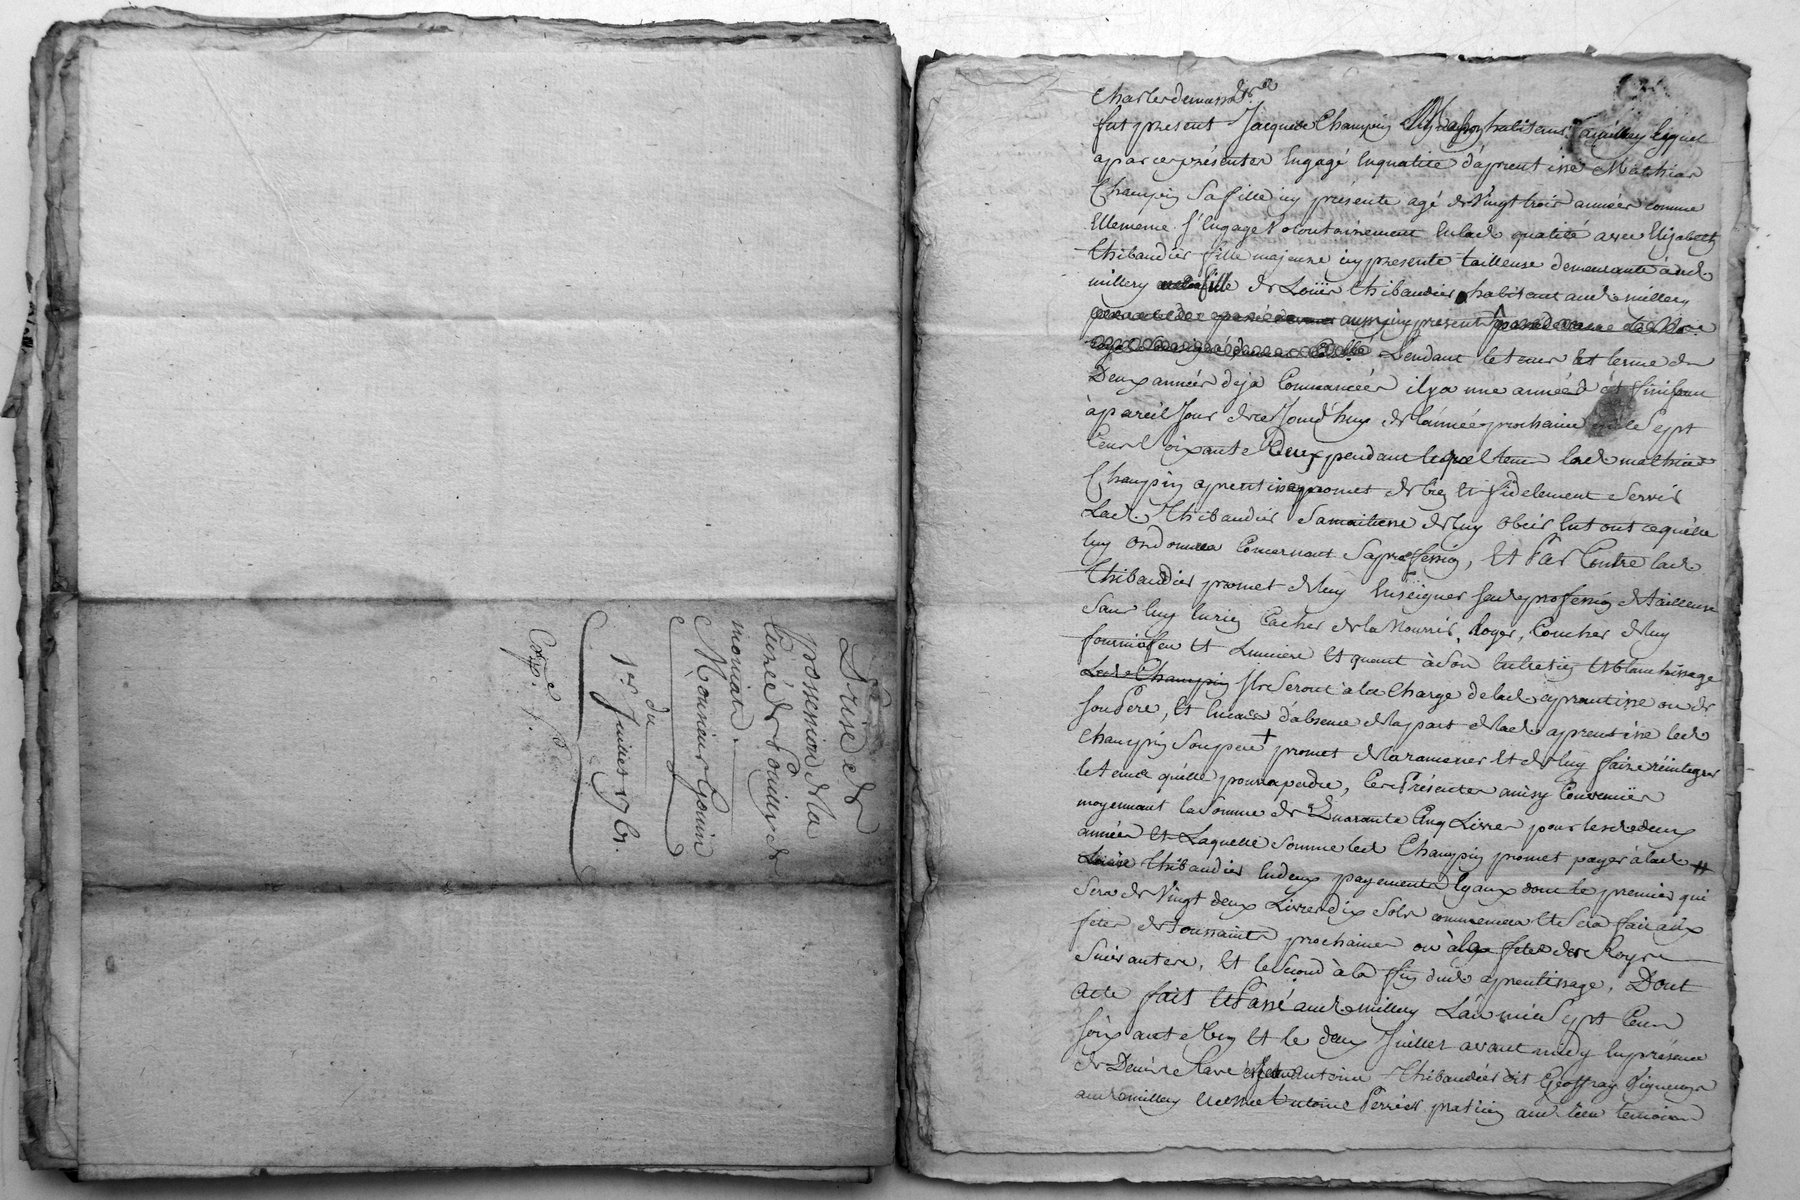 Prise de
possession de la
Curée de Pouilly le
monial.
Monsieur Gonin
du
1er Juillet 1761.
Fut present Jacques Champin habitant a millery lequel
a par ces présentes Engagé En qualité d'aprentisse Mathias
Champin Sa fille icy présente agé de Vingt trois années comme
Ellememe s'Engage Volontairement En lad qualité avec Elizabeth
Thibaudier fille majeure icy presente tailleuse demeurante aud
millery fille de Loüis Thibaudier habitant aud millery
aussy icy present Pendant le tems et terme de
Deux années deja Commancées il y a une année et finissant
à pareil Jour de ce Jourd'huy de l'année prochaine mille sept
Cent Soixante Deux pendant lequel tems lad mathias
Champin aprentisse promet de bien et fidelement Servir
Lad. Thibaudier Sa maitresse de luy obeir En tout ce qu'elle
luy ordonnera Concernant Sa profession, Et Par Contre lad
Thibaudier promet de luy Enseigner sad profession de tailleuse
Sans luy En rien Cacher de la Nourrir, Loger, Coucher de luy
fournir feu Et Lumiere Et quant à Son Entretien Et blanchissage
Led Champin Ils Seront à la Charge de lad aprentisse ou de
son Pere, Et En cas d'absence de la part de lad aprentisse led
Champin Son pere + promet de la ramener Et de luy faire réintegrer
le tems qu'elle pourra perdre, Ces Présentes ainsy Convenües
moyennant la Somme de Quarante Cinq Livres pour lesd deux
années Et Laquelle Somme led Champin promet payer à lad #
Thibaudier En deux payements Egaux dont le premier qui
Sera de Vingt deux Livres dix Sols commencera Et Sera fait aux
fetes de Toussaints prochaines ou à la fete des Roys
Suivantes, Et le Second à la fin dud aprentissage, Dont
Acte fait Et Passé aud millery L'an mil Sept Cent
soixante Un Et le deux Juillet avant midy En présence
de Denis Clave et Antoine Thibaudier dit Geoffray Vigneron
aud millery Antoine Perrier praticien aud lieu temoins